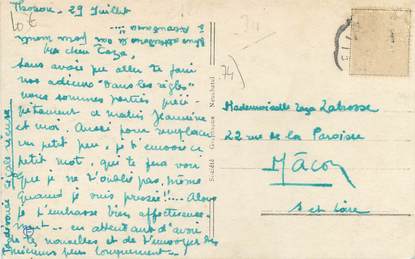 Thonon - 29 Juillet
Ma chère Zaza,
Sans avoir pu aller te faire
nos adieux "dans les règles"
nous sommes parties préci-
pitamment ce matin Jeannine
et moi. Aussi pour remplacer
un petit peu, je t'envoie ce
petit mot, qui te fera voir
que je ne t'oublie pas, même
quand je suis pressée !... Alors
je t'embrasse bien affectueuse-
ment - en attendant d'avoir
de tes nouvelles et de t'envoyer des
miennes plus longuement.
Mademoiselle Zaza Labrosse
22 rue de la Paroisse
Mâcon
S et Loire
Société Graphique Neuchatel
10 €
74
74